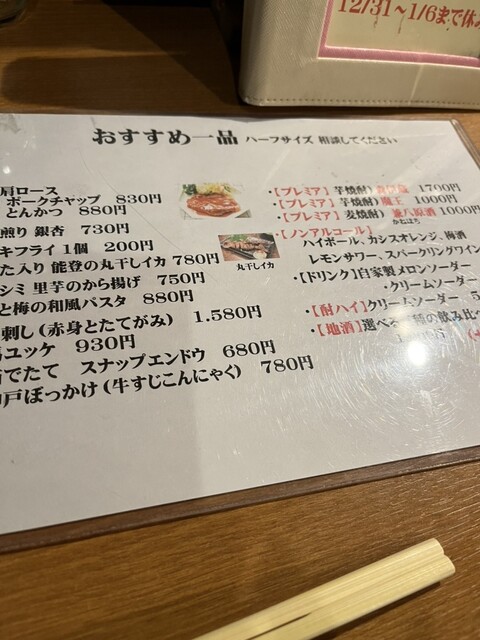 12/31～1/6まで休み
おすすめ一品 ハーフサイズ 相談してください
肩ロース
ポークチャップ 830円
とんかつ 880円
煎り 銀杏 730円
キフライ 1個 200円
た入り 能登の丸干しイカ 780円
シミ 里芋のから揚げ 750円
と梅の和風パスタ 880円
刺し(赤身とたてがみ) 1.580円
ユッケ 930円
でたて スナップエンドウ 680円
戸ぼっかけ(牛すじこんにゃく) 780円
丸干しイカ
・【プレミア】 芋焼酎) 1700円
・【プレミア】 芋焼酎) 魔王 1000円
・【プレミア】 麦焼酎) 兼八原酒 1000円
かねはち
・【ノンアルコール】
ハイボール、カシスオレンジ、梅酒
レモンサワー、スパークリングワイン
・【ドリンク】自家製メロンソーダー
・クリームソーダー
・【酎ハイ】クリームソーダー 5
・【地酒】選べる 種の飲み比べ